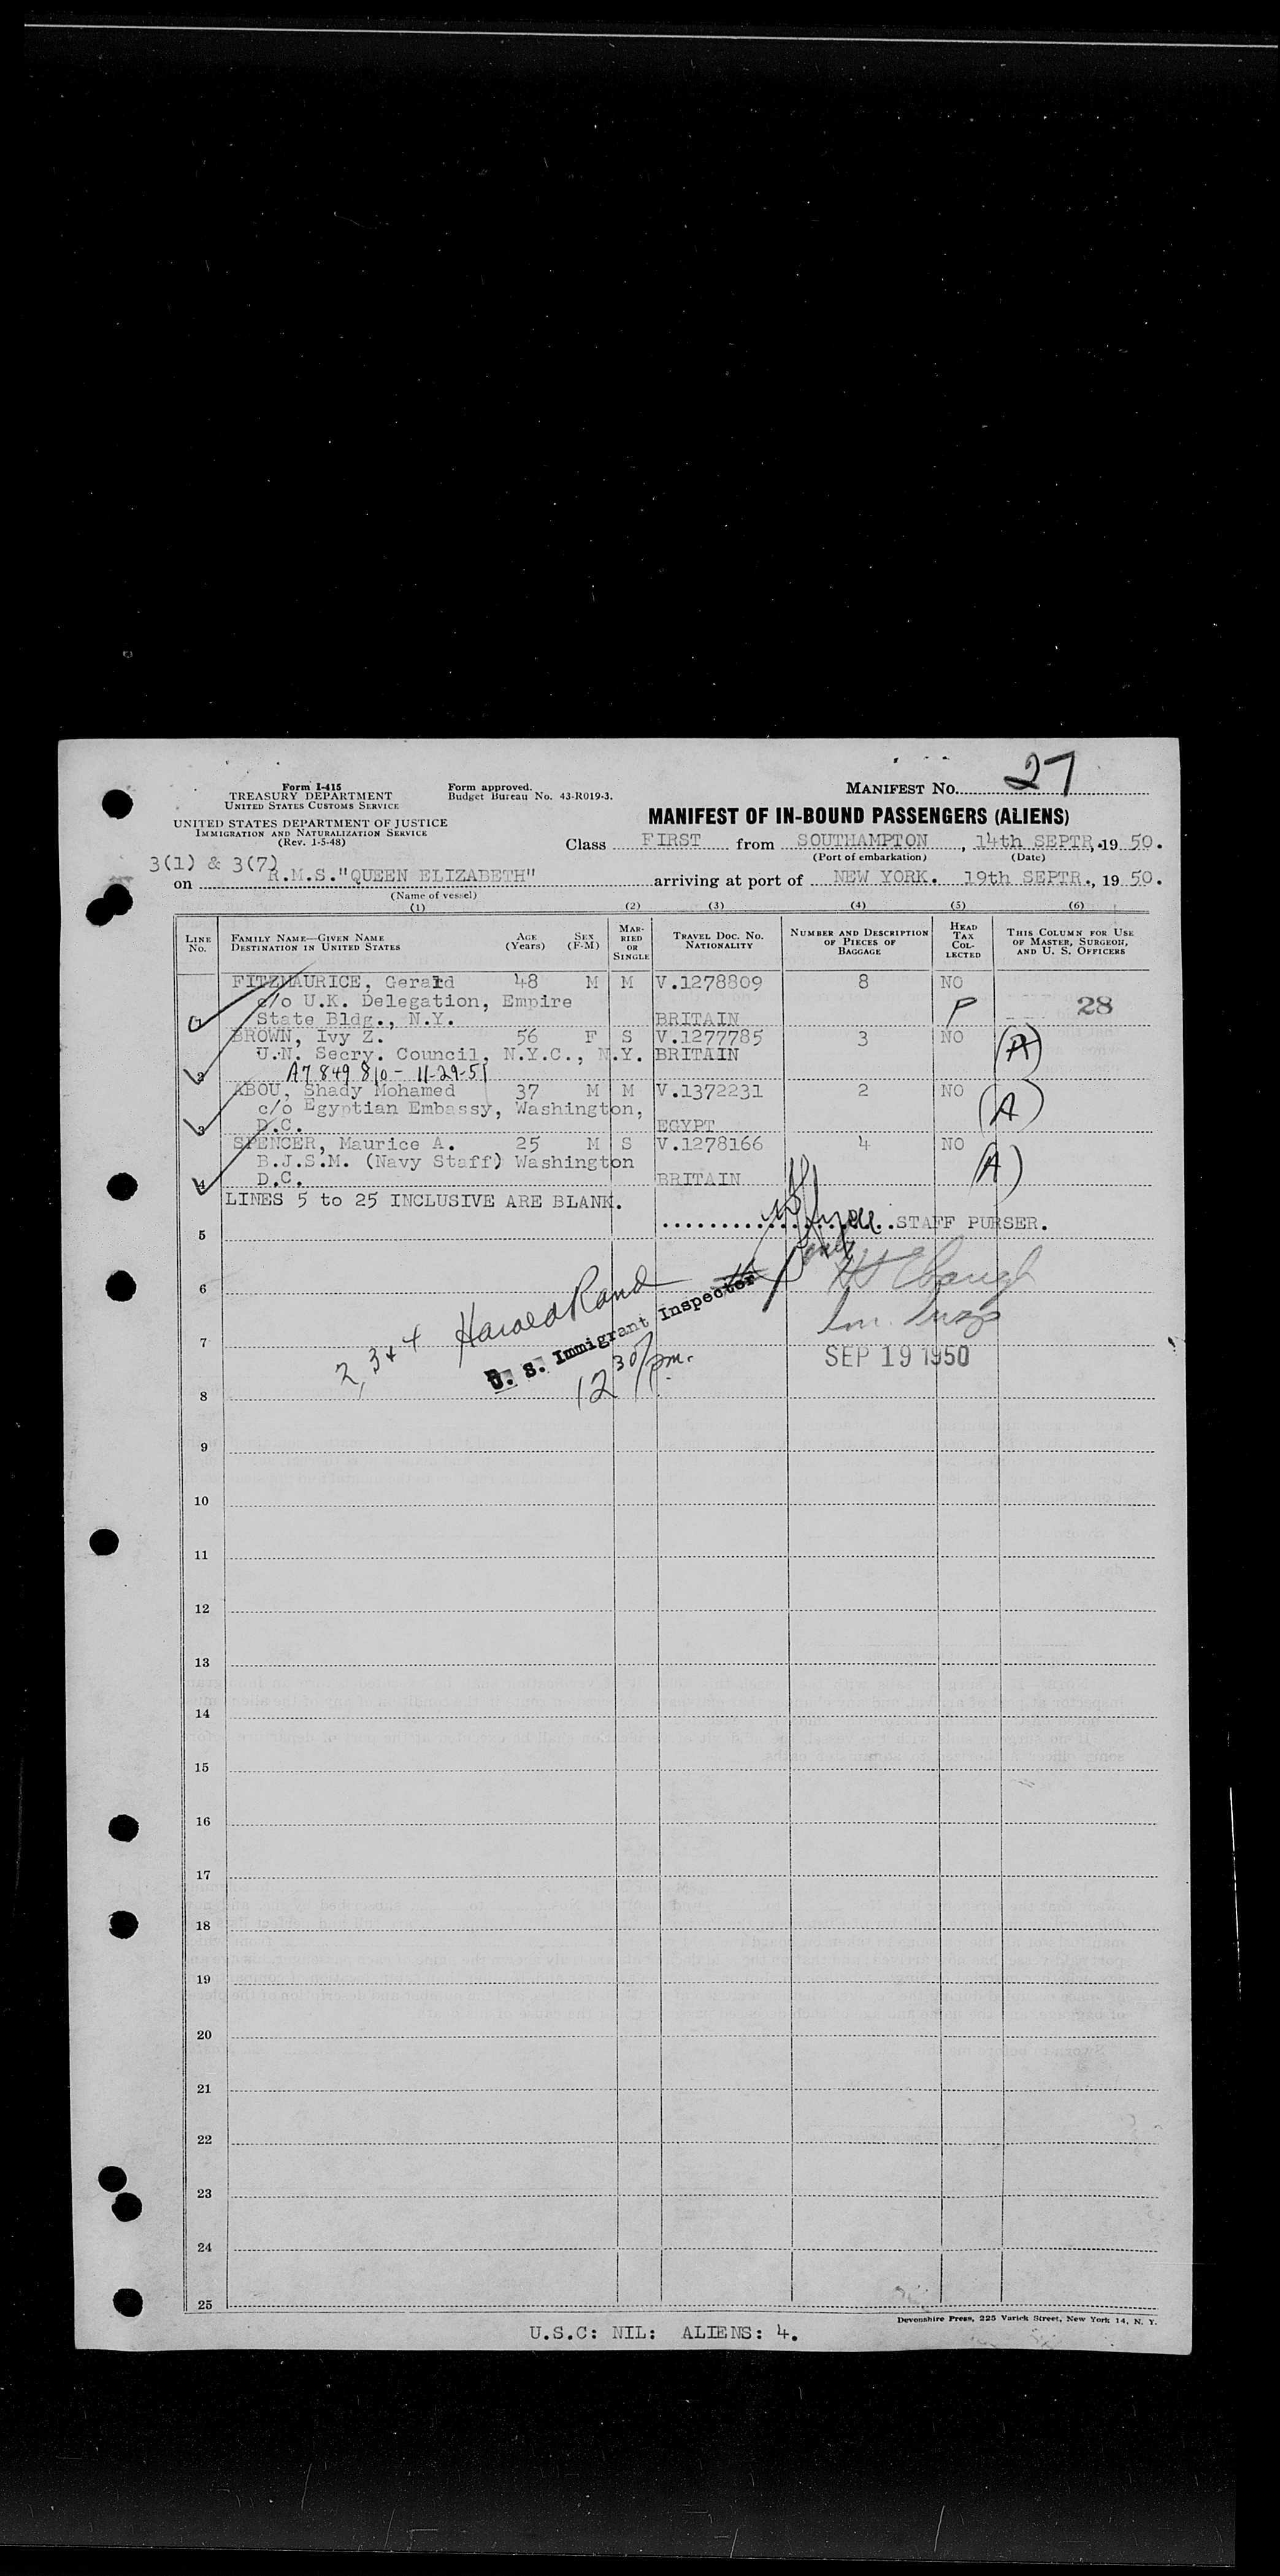 27
Form I-415
TREASURY DEPARTMENT
UNITED STATES CUSTOMS SERVICE
Form approved.
Budget Bureau No. 43-R019-3.
MANIFEST NO.
UNITED STATES DEPARTMENT OF JUSTICE
IMMIGRATION AND NATURALIZATION SERVICE
(Rev. 1-5-48)
MANIFEST OF IN-BOUND PASSENGERS (ALIENS)
Class FIRST from SOUTHAMPTON, 14th SEPTR, 1950.
(Port of embarkation) (Date)
3(1) & 3(7)
on R.M.S."QUEEN ELIZABETH" arriving at port of NEW YORK. 19th SEPTR., 1950.
(Name of vessel)
(1) (2) (3) (4) (5) (6)
LINE NO. FAMILY NAME—GIVEN NAME DESTINATION IN UNITED STATES AGE (Years) SEX (F-M) MARRIED OR SINGLE TRAVEL DOC. NO. NATIONALITY NUMBER AND DESCRIPTION OF PIECES OF BAGGAGE HEAD TAX COLLECTED THIS COLUMN FOR USE OF MASTER, SURGEON, AND U. S. OFFICERS
FITZMAURICE, Gerald 48 M M V.1278809 8 NO
c/o U.K. Delegation, Empire P 28
State Bldg., N.Y. BRITAIN
BROWN, Ivy Z. 56 F S V.1277785 3 NO
U.N. Secry. Council, N.Y.C., N.Y. BRITAIN (A)
2 A7 849 810 - 11-29-51
ABOU, Shady Mohamed 37 M M V.1372231 2 NO
c/o Egyptian Embassy, Washington, (A)
3 D.C. EGYPT
SPENCER, Maurice A. 25 M S V.1278166 4 NO
B.J.S.M. (Navy Staff) Washington (A)
4 D.C. BRITAIN
LINES 5 to 25 INCLUSIVE ARE BLANK.
STAFF PURSER.
5
6
2, 3 + 4 Harold Rand
U. S. Immigrant Inspector
7
SEP 19 1950
12 30 pm.
8
9
10
11
12
13
14
15
16
17
18
19
20
21
22
23
24
25
Devonshire Press, 225 Varick Street, New York 14, N. Y.
U.S.C: NIL: ALIENS: 4.